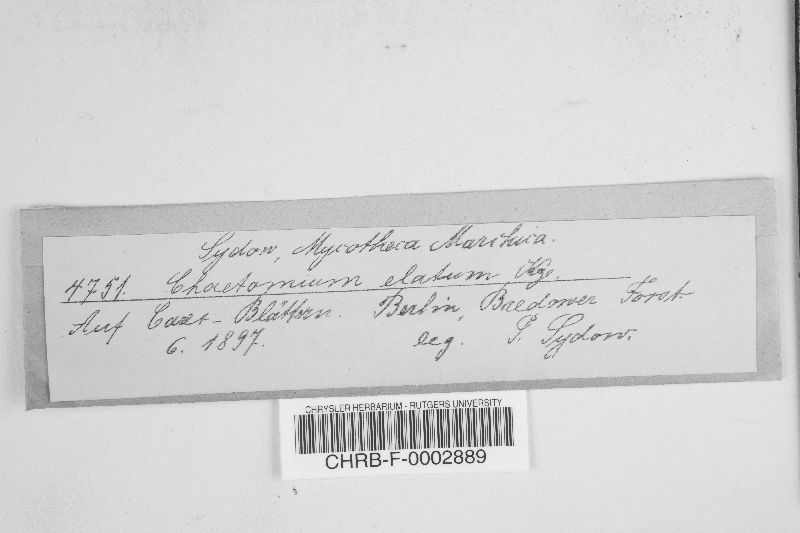 Sydow, Mycotheca Marchica.
4751. Chaetomium elatum Kze.
Auf Carex-Blättern. Berlin, Bredower Forst
6. 1897. leg. P. Sydow.
CHRYSLER HERBARIUM - RUTGERS UNIVERSITY
CHRB-F-0002889